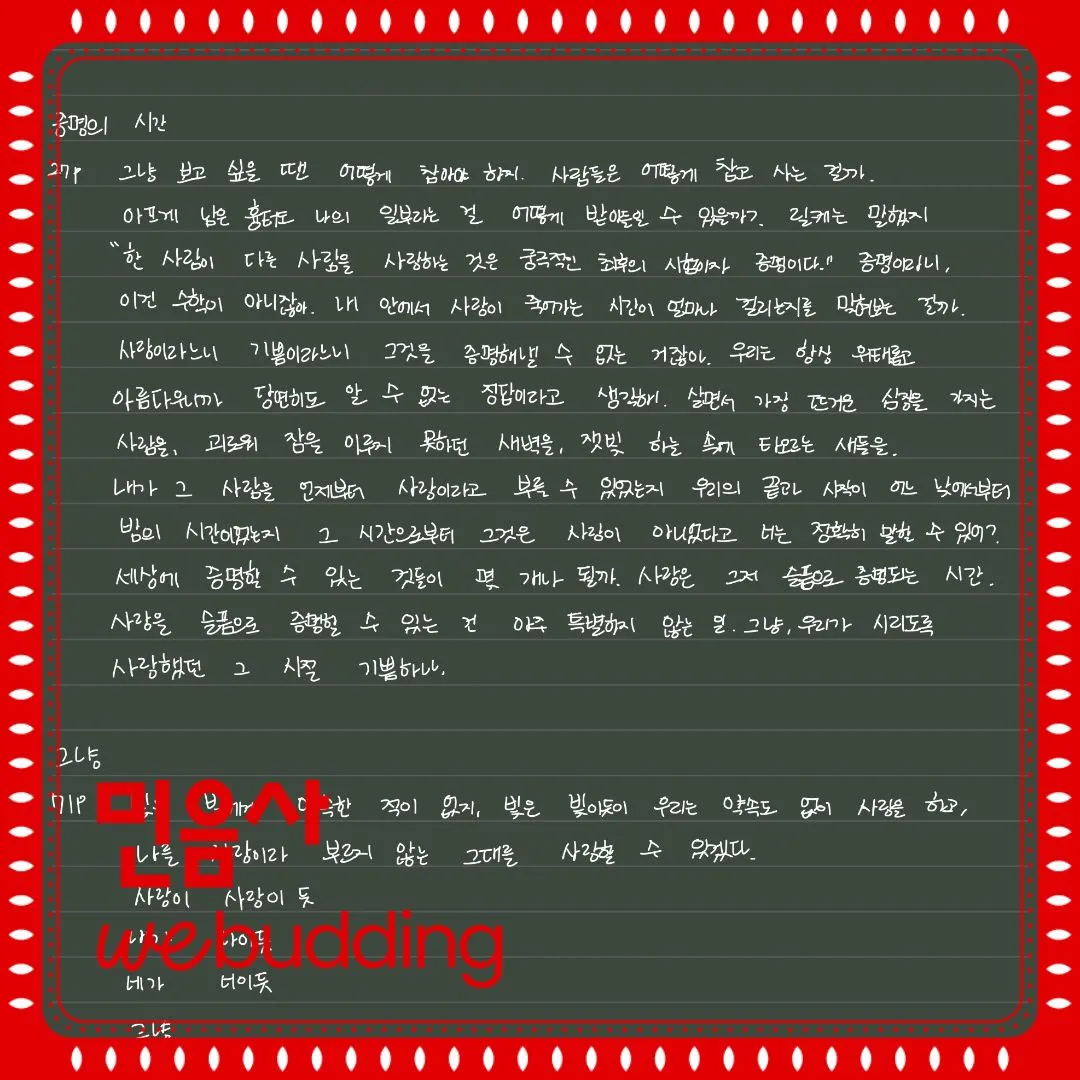 증명의 시간
27p 그냥 보고 싶을 땐 어떻게 참아야 하지. 사람들은 어떻게 참고 사는 걸까.
아프게 남은 흉터도 나의 일부라는 걸 어떻게 받아들일 수 있을까? 릴케는 말했지
"한 사람이 다른 사람을 사랑하는 것은 궁극적인 최후의 시험이자 증명이다." 증명이라니,
이건 수학이 아니잖아. 내 안에서 사랑이 죽어가는 시간이 얼마나 걸리는지를 말해보는 걸까.
사랑이라느니 기쁨이라느니 그것을 증명해낼 수 없는 거잖아. 우리는 항상 위태롭고
아름다우니까 당연히도 알 수 없는 정답이라고 생각해. 살면서 가장 뜨거운 심장을 가지는
사람을, 괴로워 잠을 이루지 못하던 새벽을, 잿빛 하늘 속에 타오르는 새들을.
내가 그 사람을 언제부터 사랑이라고 부를 수 있었는지 우리의 끝과 시작이 어느 낮에서부터
밤의 시간이었는지 그 시간으로부터 그것은 사랑이 아니었다고 너는 정확히 말할 수 있어?
세상에 증명할 수 있는 것들이 몇 개나 될까. 사랑은 그저 슬픔으로 증명되는 시간.
사랑을 슬픔으로 증명할 수 있는 건 아주 특별하지 않는 일. 그냥, 우리가 시리도록
사랑했던 그 시절 기쁨하나.
그냥
71p 적이 없지, 빛은 빛이듯이 우리는 약속도 없이 사랑을 하고,
나를 사랑이라 부르지 않는 그대를 사랑할 수 있겠다.
사랑이 사랑이 듯
내가 나이듯
네가 너이듯
그냥
민음사
webudding